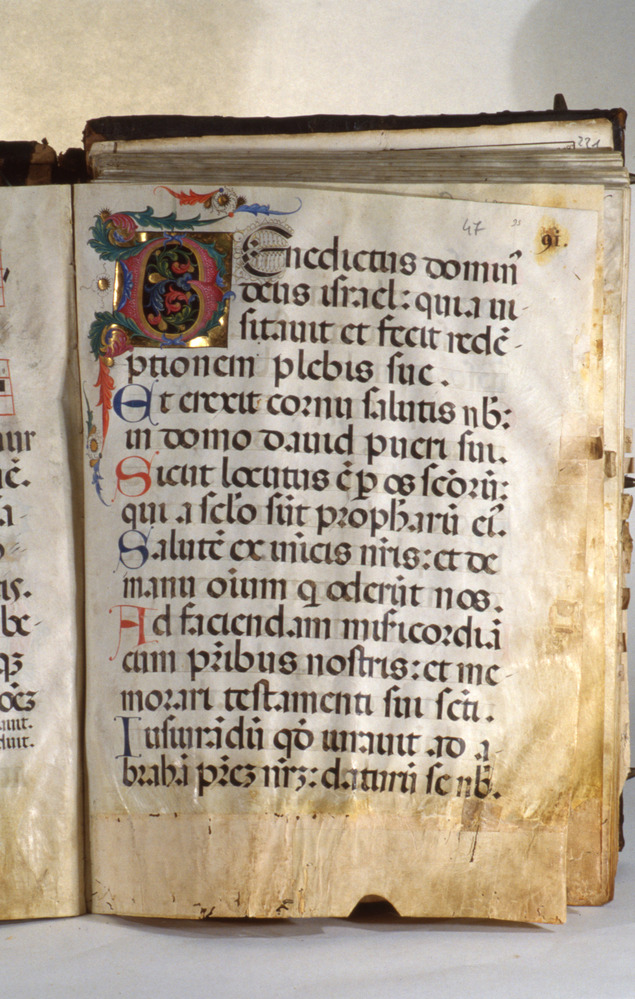 221
47
91
91.
BEnedictus domin̄
deus israel: quia ui-
sitauit et fecit redē-
ptionem plebis sue.
Et erexit cornu salutis nb̄:
in domo dauid pueri sui.
Sicut locutus ē p os sc̄orū:
qui a sclo sūt prophaꝝ ei.
Salutē ex inicis nris: et de
manu oīum q oderūt nos.
Ad faciendam misicordiā
cum pribus nostris: et me-
morari testamenti sui scti.
Iusiurādū qd iurauit ad a-
brahā prēz nrz: daturū se nb̄.